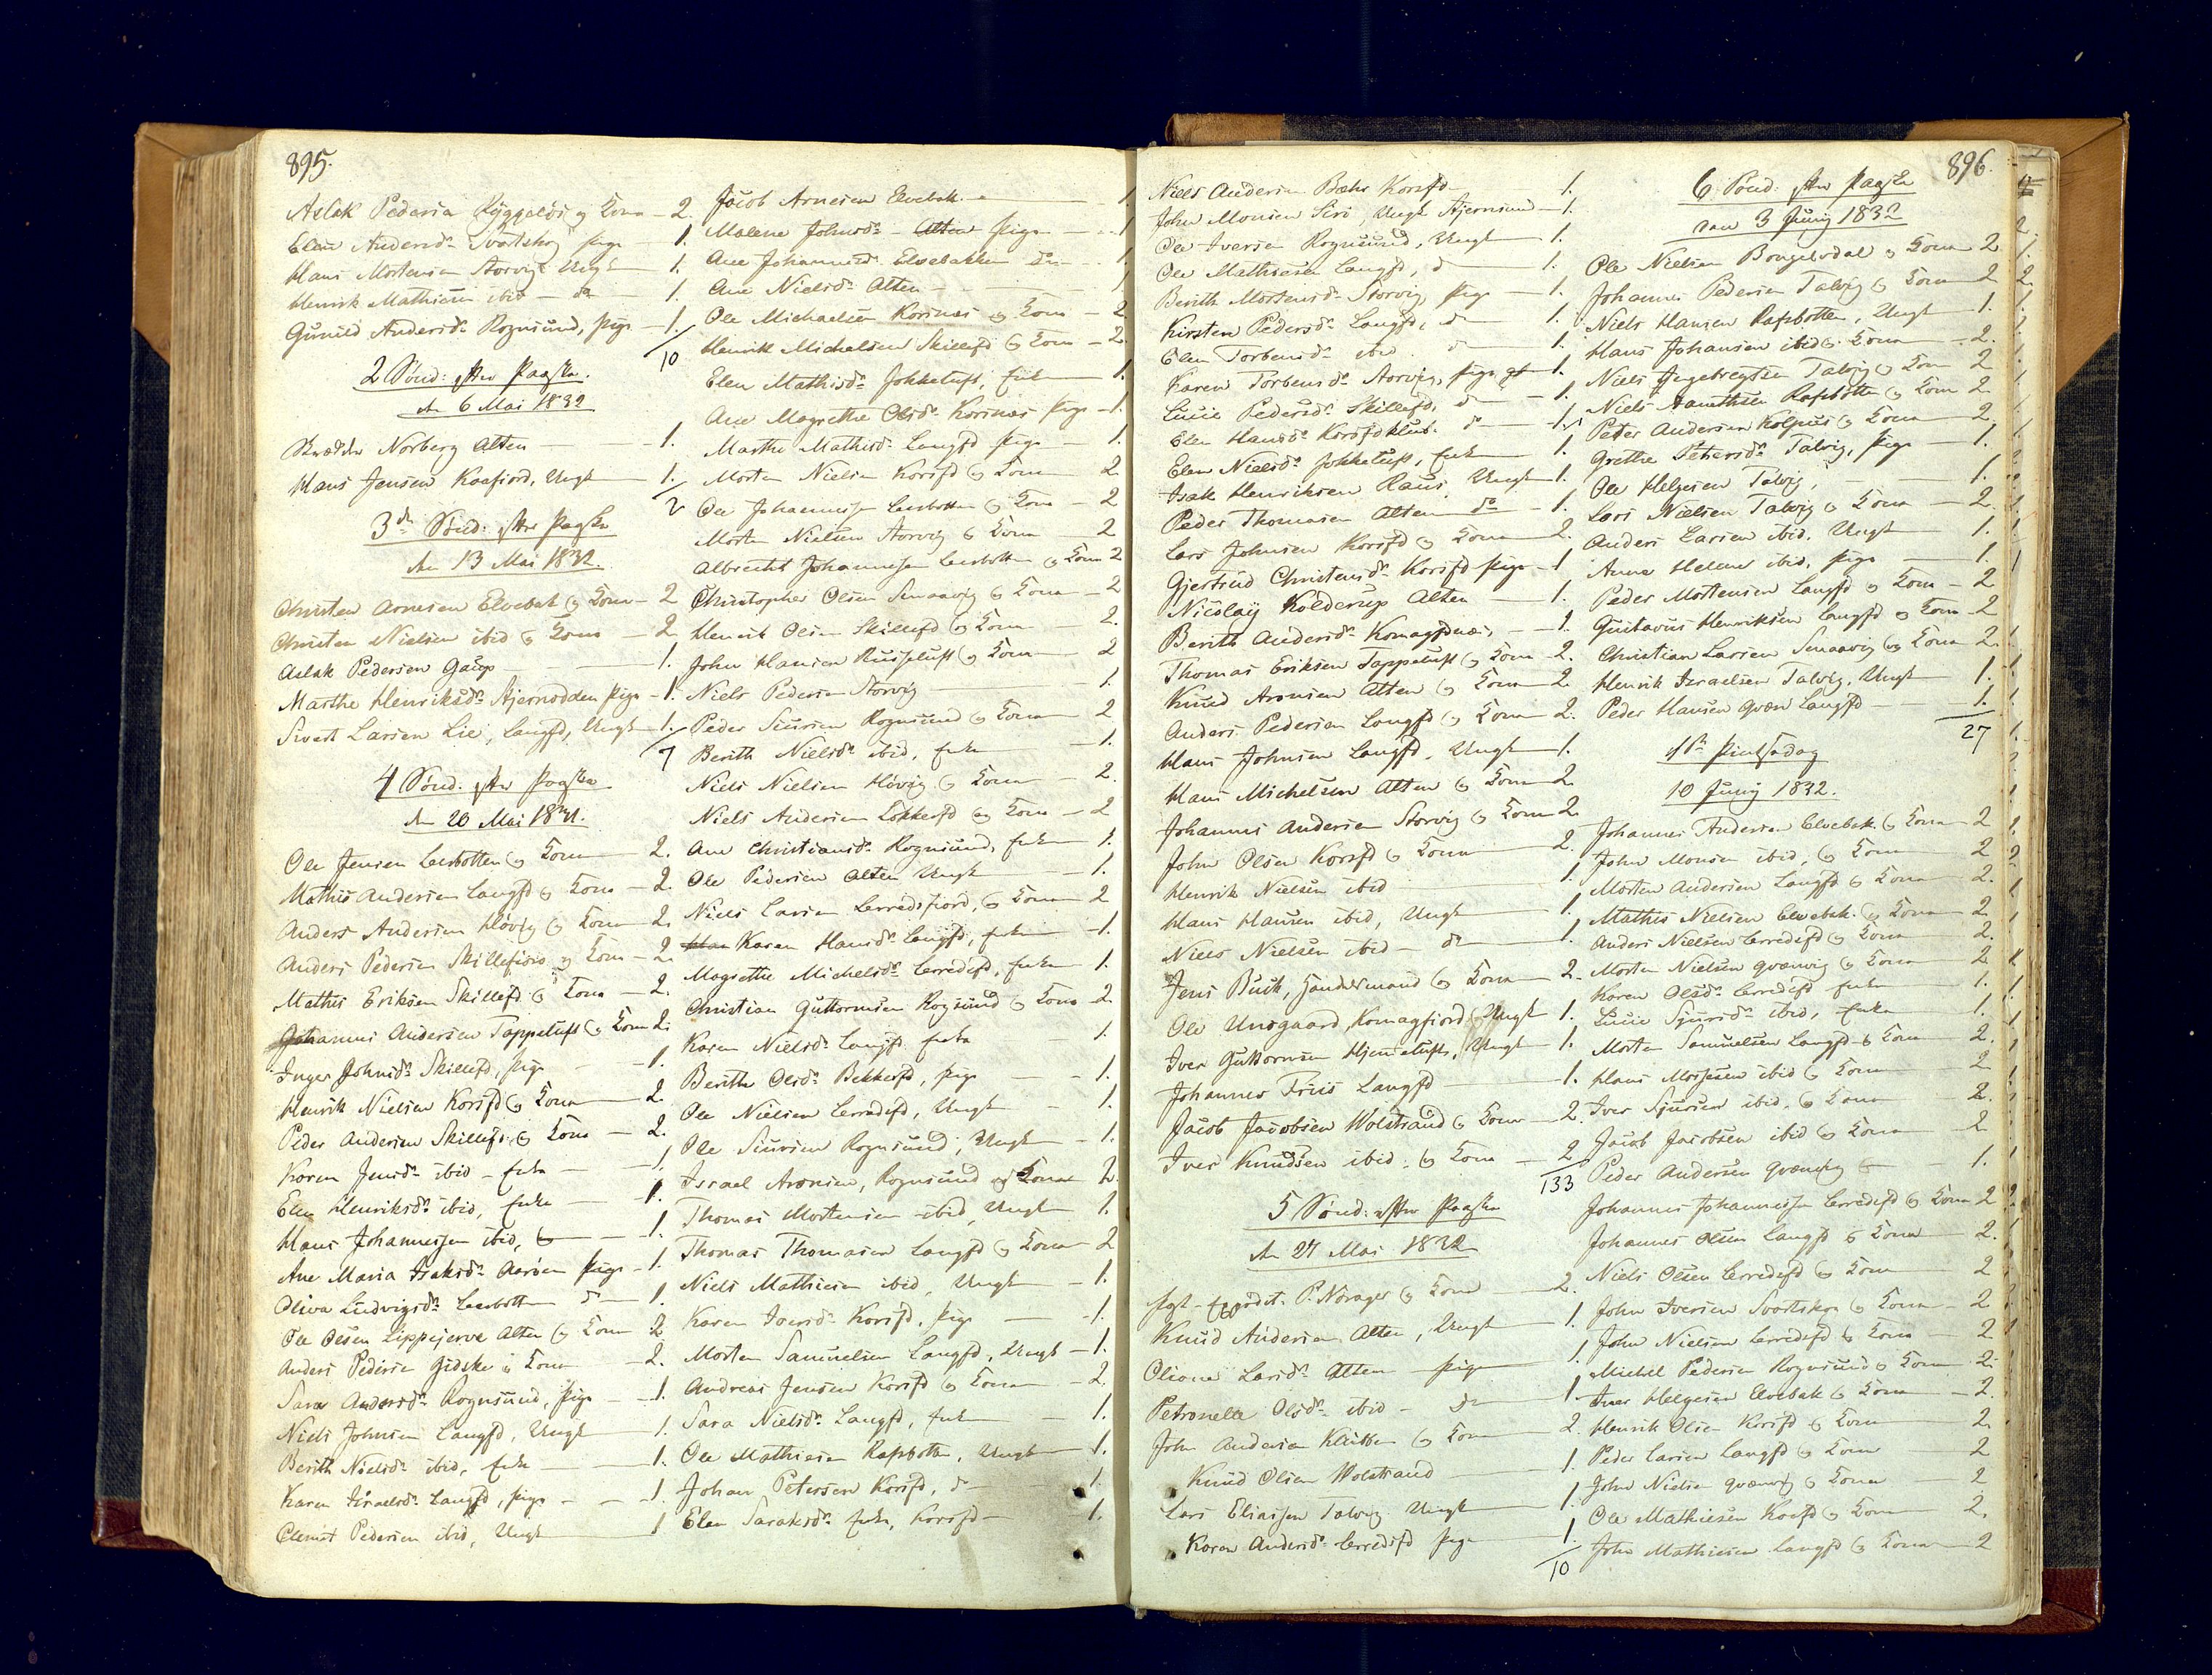 895.
Aslak Pedersen og Kona - 2.
Elen Andersdr Svartskog pige - 1.
Hans Mortensen Storvig Ungk - 1.
Henrik Mathisen ibid - do - 1.
Gunild Andersdr Rognsund, pige - 1.
10
2 Sønd: efter Paaske.
den 6 Mai 1832
Norberg Alten - 1.
Hans Jensen Kaafiord, Ungk - 1.
2
3de Sønd: efter Paaske
den 13 Mai 1832.
Christen Arnesen Elvebak og Kona - 2
Christen Nielsen ibid og Kona - 2
Aslak Pedersen Gaup - 1.
Marthe Henriksdr Stjernodden pige - 1.
Sivert Larsen Lie, Langfd, Ungk - 1.
7
4 Sønd. efter Paaske
den 20 Mai 1832.
Ole Jensen Leerbotten og Kona - 2.
Mathis Andersen Langfd og Kona - 2.
Anders Andersen Høvig og Kona - 2.
Anders Pedersen Skillefiord og Kona - 2.
Mathis Eriksen Skillefd og Kona - 2.
Johannes Andersen Tappeluft og Kona 2.
Inger Johnsdr Skillefd, pige - 1.
Henrik Nielsen Korsfd og Kona - 2.
Peder Andersen Skillefd og Kona - 2.
Karen Jensdr ibid - Enke - 1
Elen Henriksdr ibid, Enke - 1.
Hans Johannessen ibid, - 1.
Ane Maria Isaksdr Aarøen pige - 1.
Oliva Ludvigsdr Leerbotten do - 1.
Ole Olsen Lippejerve Alten og Kona 2
Anders Pedersen Gidske og Kona - 2.
Sara Andersdr Rognsund, pige - 1.
Niels Johnsen Langfd, Ungk - 1.
Berith Nielsdr ibid, Enke - 1.
Karen Israelsdr Langfd, pige - 1.
Clemet Pedersen ibid, Ungk 1
Jacob Arnesen Elvebak. - 1
Malene Johnsdr - Alten pige - 1
Ane Johannesdr Elvebakken do - 1.
Ane Nielsdr Alten - 1
Ole Michaelsen Korsnæs og Kona - 2
Henrik Michelsen Skillefd og Kona - 2.
Elen Mathisdr Jokkeluft, Enke - 1.
Ane Magrethe Olsdr Korsnæs pige - 1.
Marthe Mathisdr Langfd pige - 1.
Morten Nielsen Korsfd og Kona 2.
Ole Johannessen Leerbotten og Kona - 2
Morten Nielsen Storvig og Kona - 2
Albrecht Johannessen Leerbotten og Kona 2
Christopher Olsen Smaavig og Kona - 2
Henrik Olsen Skillefd og Kona - 2.
John Hansen Russeluft og Kona 2
Niels Pedersen Storvig - 1.
Peder Siursen Rognsund og Kona 2
Berith Nielsdr ibid, Enke - 1.
Niels Nielsen Høvig og Kona - 2.
Niels Andersen Lokkerfd og Kona - 2
Ane Christiansdr Rognsund, Enke 1.
Ole Pedersen Alten Ungk - 1.
Niels Larsen Lerredsfiord, og Kona 2
Karen Hansdr Langfd, Enke - 1.
Magrethe Michelsdr Lerredsfd, Enke 1.
Christian Guttormsen Rogsund og Kona 2.
Karen Nielsdr Langfd. Enke 1.
Berithe Olsdr Bekkerfd, pige - 1.
Ole Nielsen Lerredsfd, Ungk - 1.
Ole Siursen Rognsund, Ungk - 1.
Israel Aronsen, Rognsund og Kona 2.
Thomas Mortensen ibid, Ungk 1.
Thomas Thomasen Langfd og Kona 2
Niels Mathisen ibid, Ungk - 1.
Karen Iversdr Korsfd, pige - 1.
Morten Samuelsen Langfd, Ungk - 1.
Andreas Jensen Korsfd og Kona - 2.
Sara Nielsdr Langfd, Enke - 1.
Ole Mathisen Rafsbotten, Ungk - 1.
Johan Petersen Korsfd, do - 1.
Elen Saraksdr Enke, Korsfd - 1.
896.
Niels Andersen Bæhr Korsfd - 1.
John Monsen Siri, Ungk Stjernsund - 1.
Ole Iversen Rognsund, Ungk - 1.
Ole Mathiesen Langfd, do - 1.
Berith Mortensdr Storvig, pige - 1.
Kirsten Pedersdr Langfd, do 1.
Elen Torbensdr ibid do 1.
Karen Torbensdr Storvig, pige 1.
Lucie Pedersdr Skillefd, do - 1
Elen Hansdr Korsfdklub. do - 1
Elen Nielsdr Jokkeluft, Enke 1
Isak Henriksen Raus Ungk 1.
Peder Thomasen Alten do - 1.
Lars Johnsen Korsfd og Kona 2.
Gjertrud Christensdr Korsfd pige - 1
Nicolay Kolderup Alten - 1.
Berith Andersdr Komagfdnæs - 1.
Thomas Eriksen Tappeluft og Kona - 2.
Knud Aronsen Alten og Kona - 2.
Anders Pedersen Langfd og Kona 2.
Hans Johnsen Langfd, Ungk - 1.
Hans Michelsen Alten og Kona 2.
Johannes Andersen Storvig og Kona 2.
John Olsen Korsfd og Kona 2.
Henrik Nielsen ibid 1.
Hans Hansen ibid, Ungk 1.
Niels Nielsen ibid - do 1.
Jens Busk, Handelsmand og Kona - 2.
Ole Undgaard, Komagfiord, Ungk 1.
Iver Guttormsen Hjemeluft, Ungk - 1.
Johannes Friis Langfd 1.
Jacob Jacobsen Wolstrand og Kona - 2.
Iver Knudsen ibid. og Kona - 2
133
5 Sønd: efter Paaske
den 27 Mai 1832
P. Norager og Kona - 2.
Knud Andersen Alten, Ungk 1.
Oliana Larsdr Alten pige 1.
Petronelle Olsdr ibid - do 1
John Andersen Klubben og Kona 2.
Knud Olsen Wolstrand 1.
Lars Eliassen Talvig Ungk 1.
Karen Andersdr Lerredsfd pige 1.
10
6 Sønd: efter Paaske
den 3 Juny 1832
Ole Nielsen Bongelvdal og Kona 2.
Johannes Pedersen Talvig og Kona 2
Niels Hansen Rafsbotten, Ungk 1.
Hans Johansen ibid og Kona - 2.
Niels Ingebregtsen Talvig og Kona 2
Niels Rafsbotten og Kona 2.
Peder Andersen Kolpus og Kona 2.
Grethe Petersdr Talvig, pige - 1.
Ole Helgesen Talvig, 1.
Lars Nielsen Talvig og Kona - 2.
Anders Larsen ibid. Ungk 1.
Anna Helene ibid, pige - 1.
Peder Mortensen Langfd og Kona - 2
Gustavus Henriksen Langfd og Kona - 2
Christian Larsen Smaavig og Kona 2.
Henrik Israelsen Talvig, Ungk 1.
Peder Hansen qvæn Langfd 1.
27
1ste Pintsedag
10 Juny 1832.
Johannes Andersen Elvebak. og Kona 2
John Monsen ibid, og Kona 2
Morten Andersen Langfd og Kona 2.
Mathis Nielsen Elvebak. og Kona 2.
Anders Nielsen Lerredsfd og Kona 2.
Morten Nielsen qvænvig og Kona 2
Karen Olsdr Lerredsfd Enke 1.
Lucie Sjursdr ibid, Enke 1.
Morten Samuelsen Langfd og Kona 2.
Hans Mossesen ibid og Kona 2
Iver Sjursen ibid. og Kona 2.
Jacob Jacobsen ibid og Kona 2
Peder Andersen qvænvig - 1.
Johannes Johannessen Lerredsfd og Kona 2
Johannes Olsen Langfd og Kona 2.
Niels Olsen Lerredsfd og Kona 2
John Iversen Svartskog og Kona - 2
John Nielsen Lerredsfd og Kona - 2
Michel Pedersen Rognsund og Kona 2.
Iver Helgesen Elvebak og Kona - 2.
Henrik Olsen Korsfd og Kona 2.
Peder Larsen Langfd og Kona 2
John Nielsen qvænvig og Kona 2
Ole Mathiesen Kaafd og Kona 2.
John Mathiesen Langfd og Kona 2